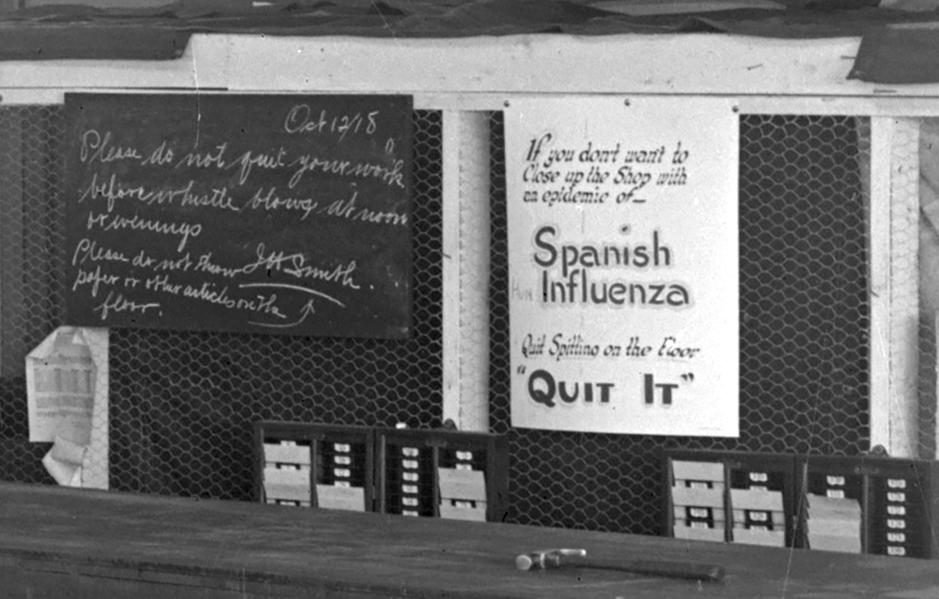 Oct 12/18
Please do not quit your work
before whistle blows at noon
or evenings
J H Smith.
Please do not throw
paper or other articles on the
floor.
If you don't want to
Close up the Shop with
an epidemic of—
Spanish
Hun Influenza
Quit Spitting on the Floor
"QUIT IT"